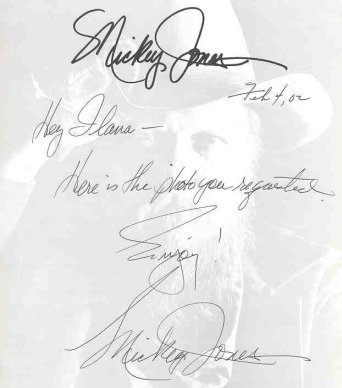 Mickey Jones
Feb 4, 02
Hey Ilana —
Here is the photo you requested.
Enjoy!
Mickey Jones